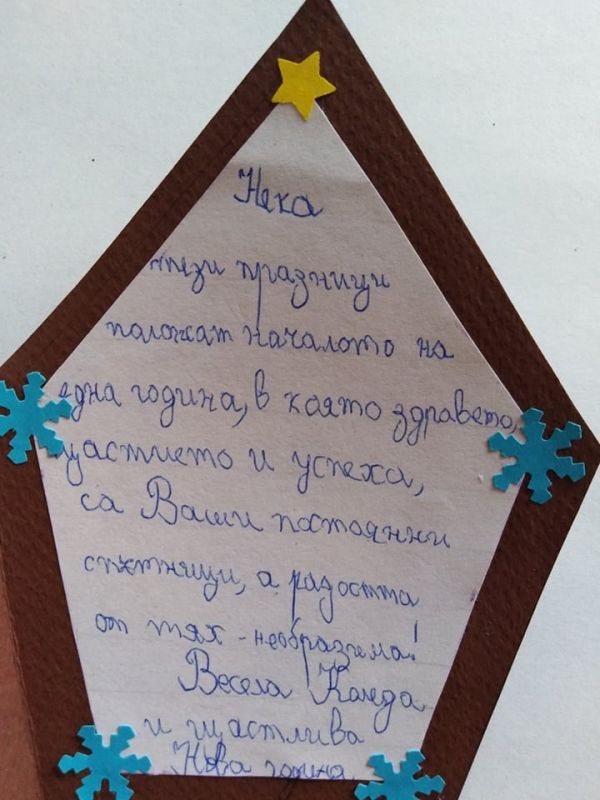 Нека
тези празници
положат началото на
една година, в която здравето,
щастието и успеха,
са Ваши постоянни
спътници, а радостта
от тях - необразима!
Весела Коледа
и щастлива
Нова година